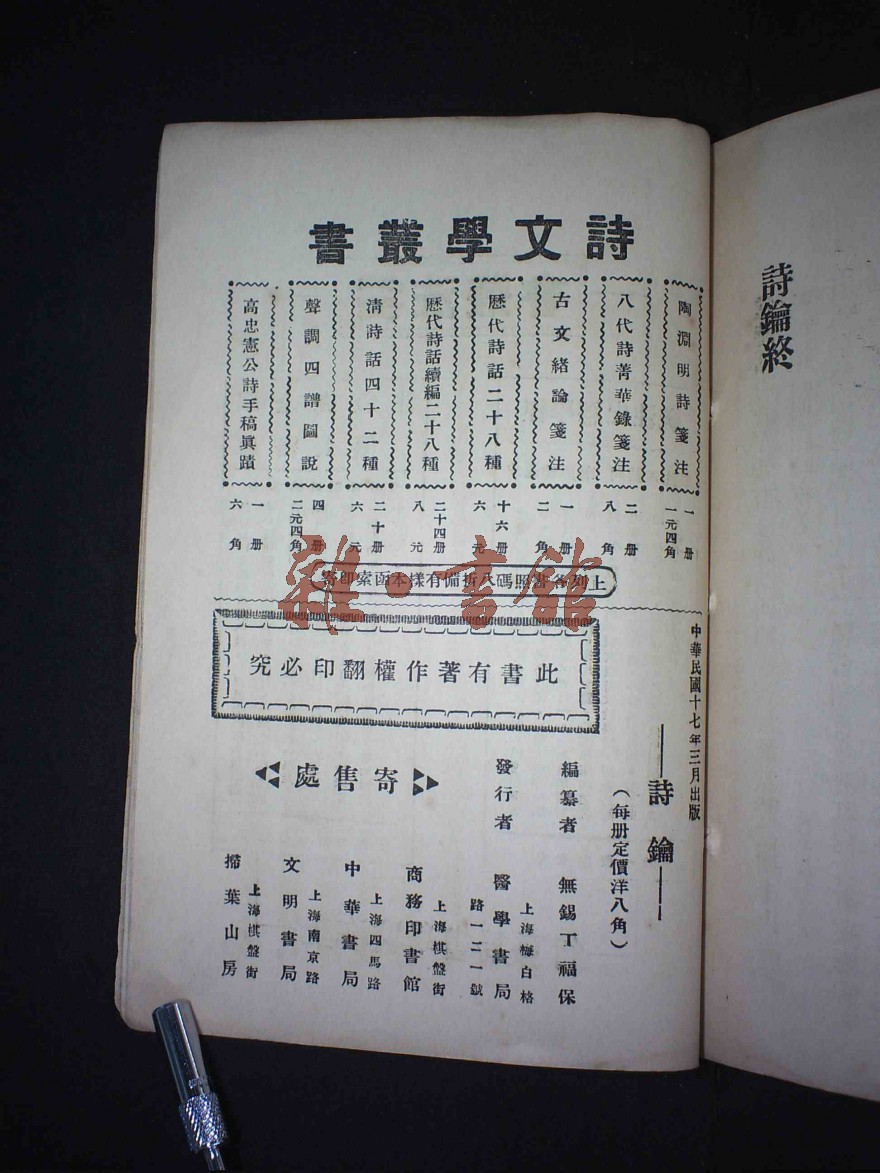 詩鑰終
詩文學叢書
陶淵明詩箋注
一册
一元四角
八代詩菁華錄箋注
二册
八角
古文緒論箋注
一册
二角
歷代詩話二十八種
十六册
六元
歷代詩話續編二十八種
二十四册
八元
清詩話四十二種
二十册
六元
聲調四譜圖說
四册
二元四角
高忠憲公詩手稿眞蹟
一册
六角
上列各書照碼八折備有樣本函索卽寄
雜·書館
此書有著作權翻印必究
中華民國十七年三月出版
詩鑰
(每册定價洋八角)
編纂者 無錫丁福保
發行者
上海梅白格
路一二一號
醫學書局
寄售處
上海棋盤街
商務印書館
上海四馬路
中華書局
上海南京路
文明書局
上海棋盤街
掃葉山房